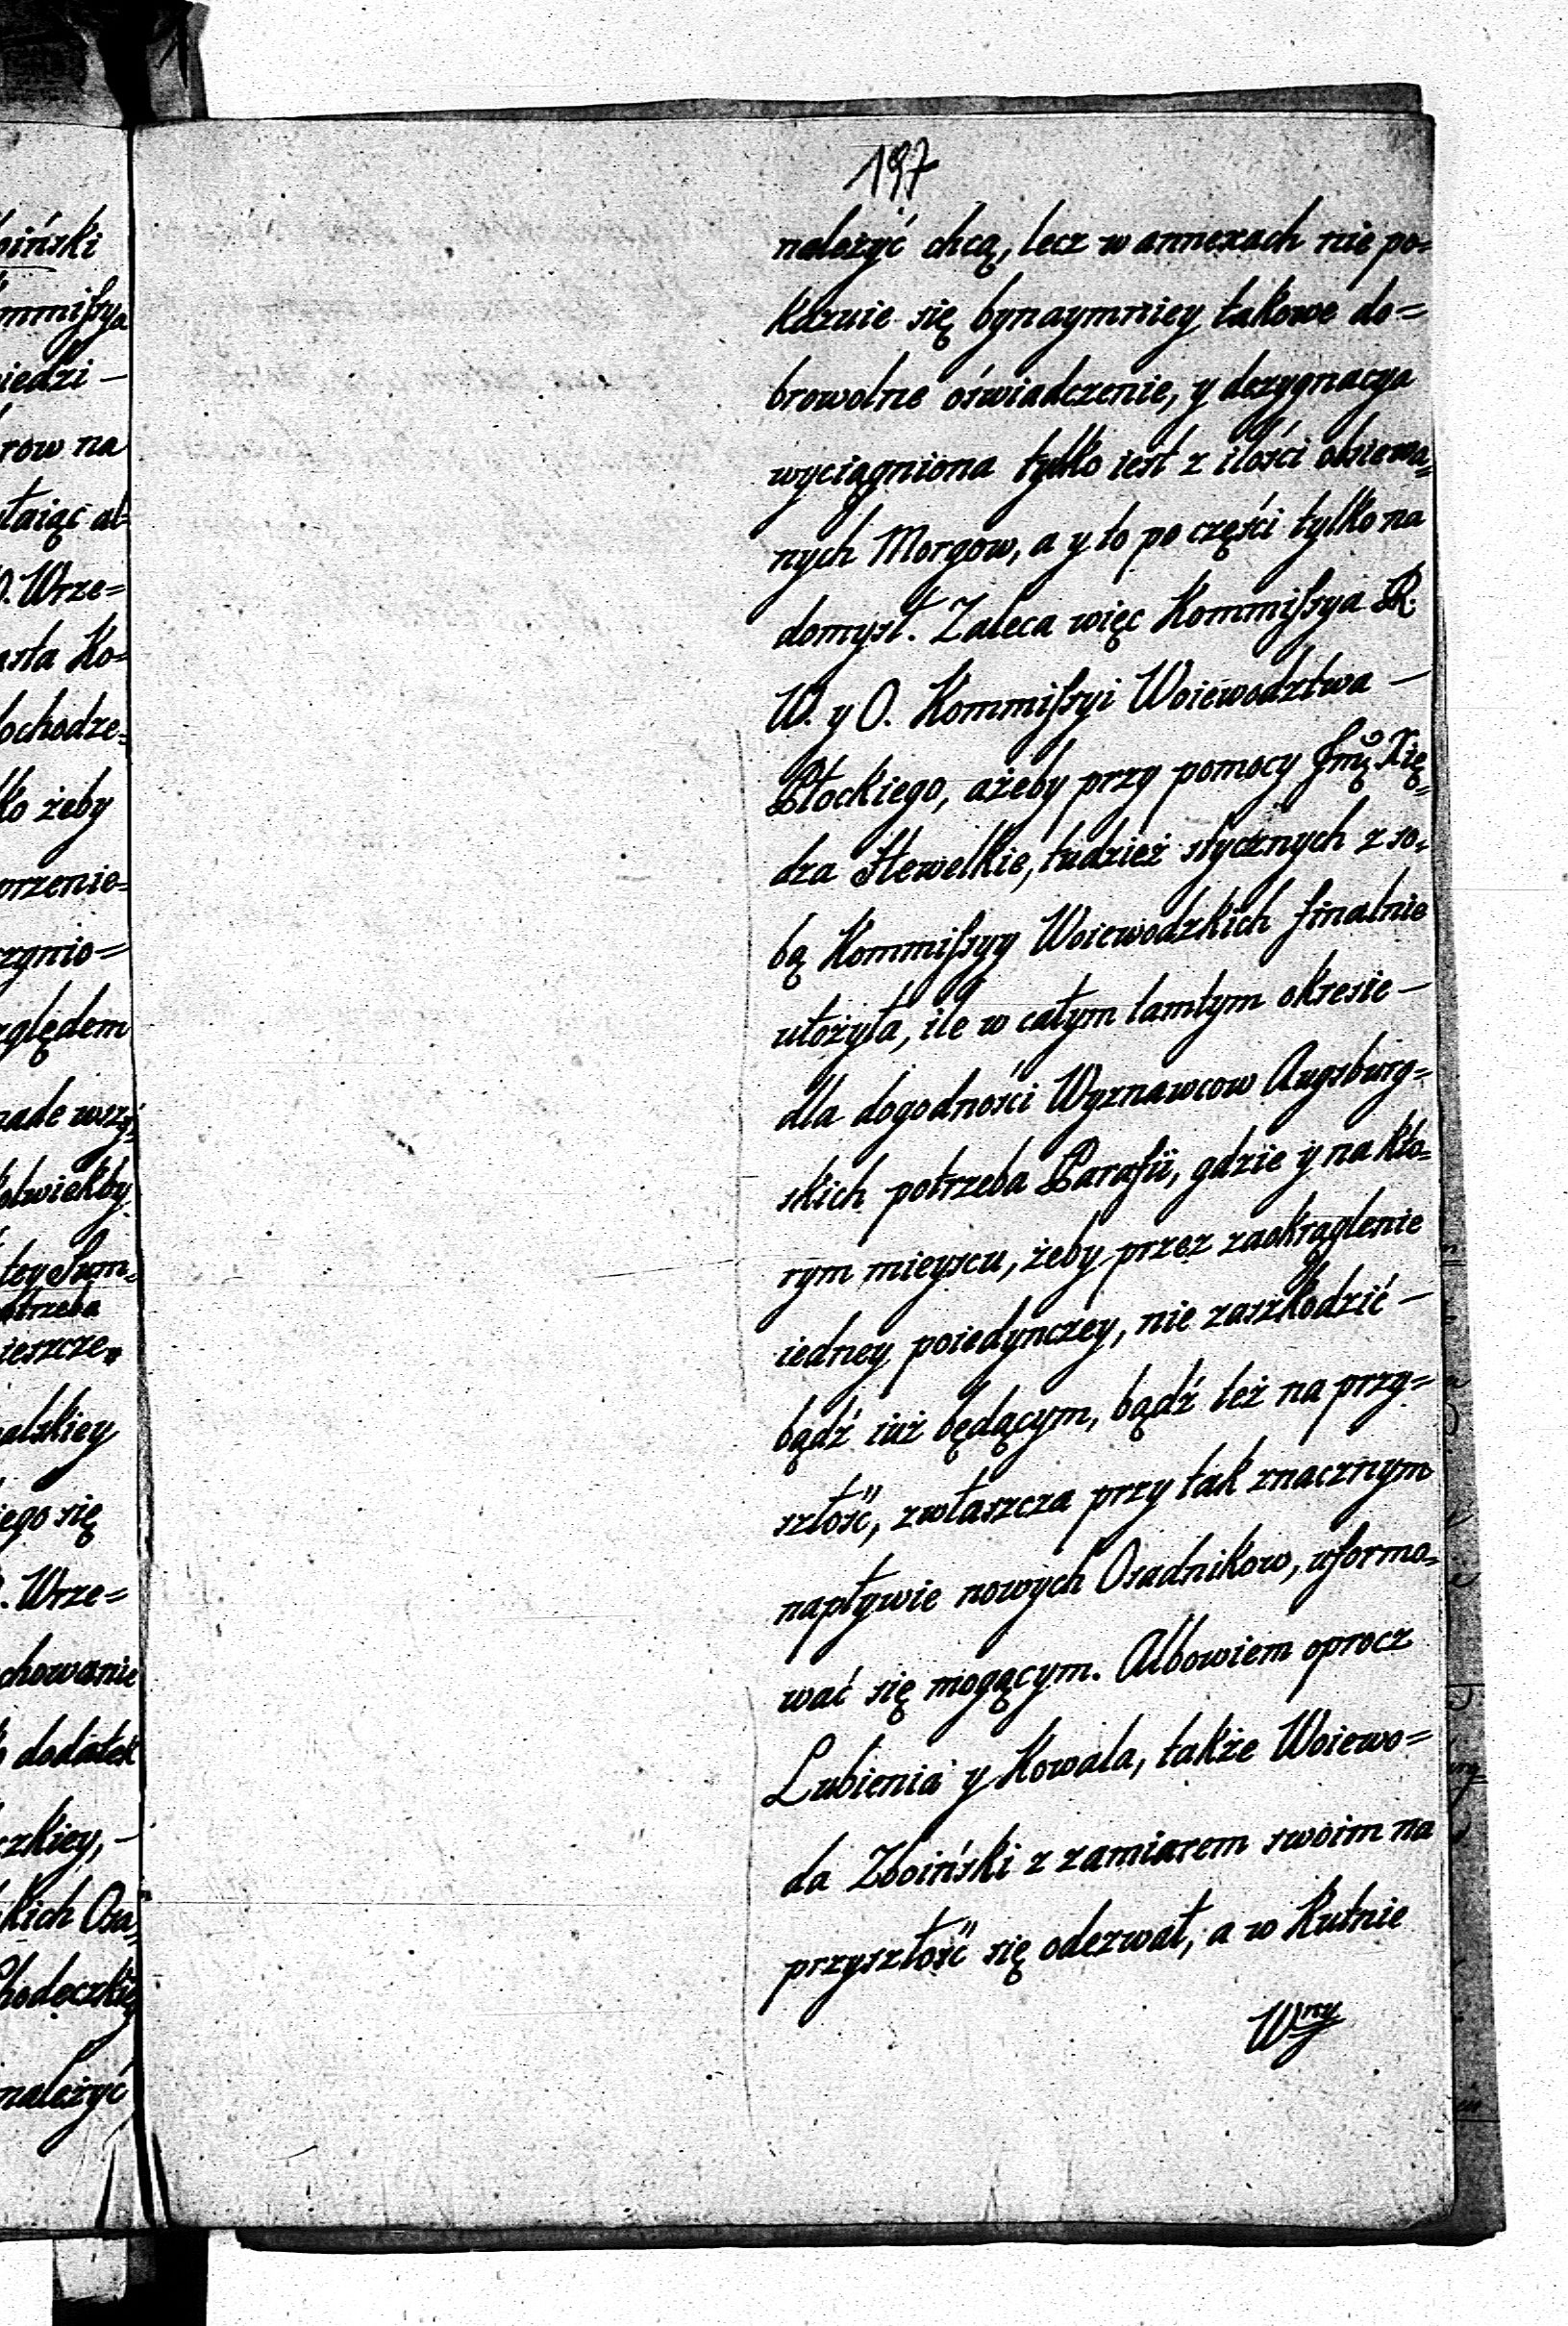 197
należyć chcą, lecz w annexach nie po=
kazuie się bynaymniey takowe do=
browolne oświadczenie, y dezygnacya
wyciągniona tylko iest z ilości obsiewa=
nych Morgow, a y to po części tylko na
domysł. Zaleca więc Kommissya R.
W. y O. Kommissyi Woiewodztwa —
Płockiego, ażeby przy pomocy Jmć Xię=
dza Hewelkie, tudzież stycznych z so=
bą Kommissyy Woiewodzkich finalnie
ułożyła, ile w całym tamtym okresie —
dla dogodności Wyznawcow Augsburg=
skich potrzeba Parafii, gdzie y na kto=
rym mieyscu, żeby przez zaokrąglenie
iedney poiedynczey, nie zaszkodzić —
bądź iuż będącym, bądź też na przy=
szłość, zwłaszcza przy tak znacznym
napływie nowych Osadnikow, uformo=
wać się mogącym. Albowiem oprocz
Lubienia y Kowala, także Woiewo=
da Zboiński z zamiarem swoim na
przyszłość się odezwał, a w Kutnie
Wny
oiński
mmissya
iedzi —
row na
taiąc al=
O. Wrze=
asta Ko=
dochodze=
ko żeby
przenie=
czynio=
zględem
nade wszy=
kolwiekby
tey Sum=
potrzeba
ieszcze
alskiey
iego się
O. Wrze=
chowanie
dodatek
czkiey, —
kich Osa=
hodeczkie
należyć